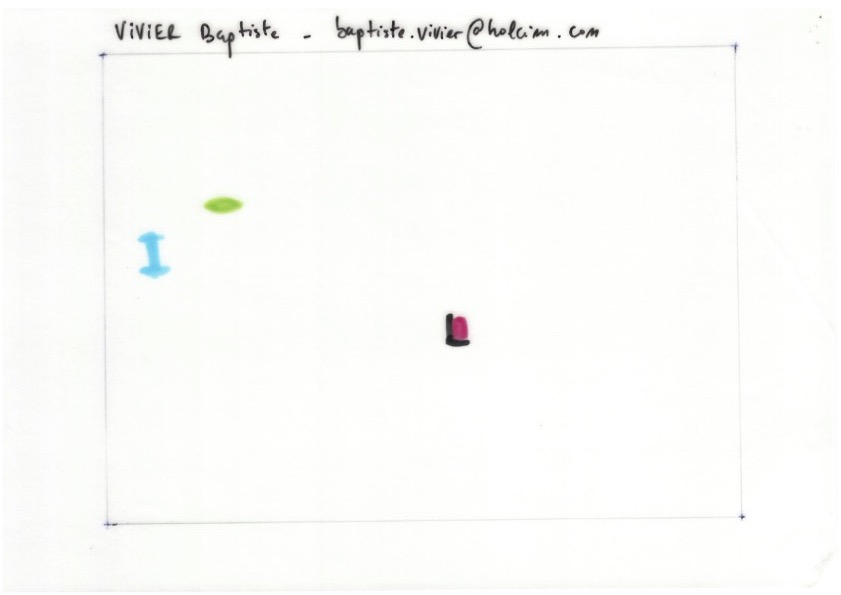 ViViER Baptiste - baptiste.vivier@holcim.com